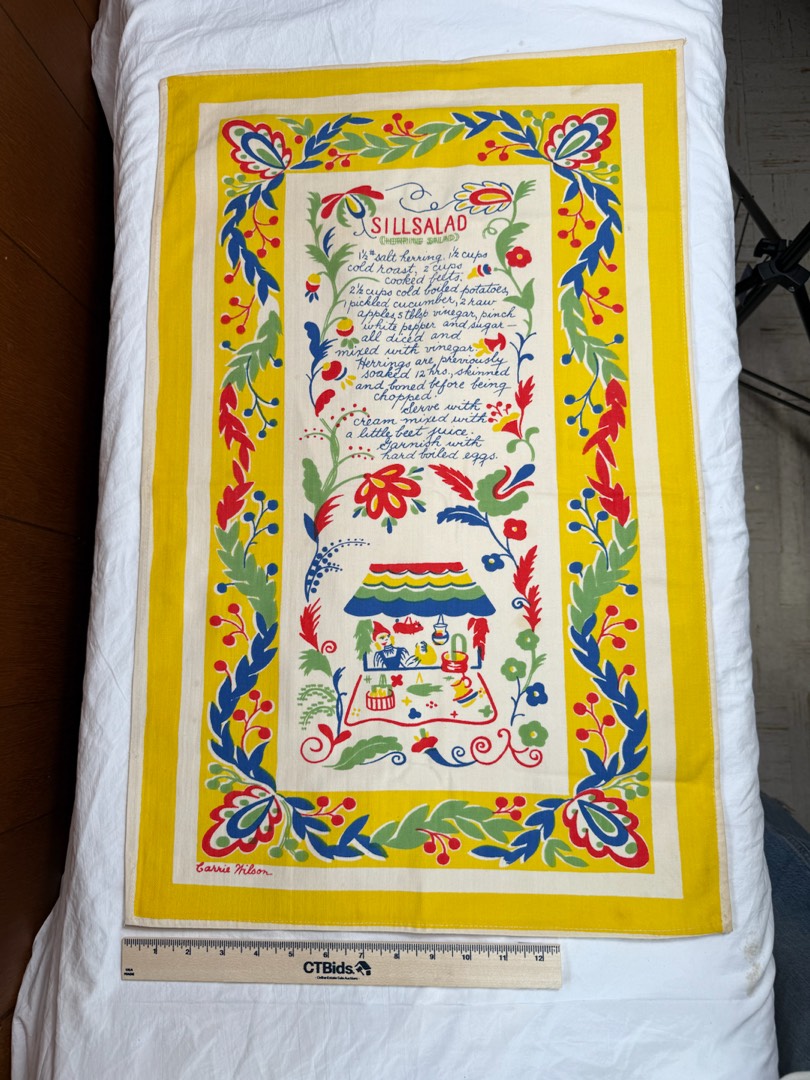 SILLSALAD
(HERRING SALAD)
1½ lb salt herring, 1½ cups
cold roast, 2 cups
cooked beets.
2½ cups cold boiled potatoes,
1 pickled cucumber, 2 raw
apples, 5 tblsp vinegar, pinch
white pepper and sugar—
all diced and
mixed with vinegar.
Herrings are previously
soaked 12 hrs., skinned
and boned before being
chopped.
Serve with
cream mixed with
a little beet juice.
Garnish with
hard boiled eggs.
Carrie Wilson
1 2 3 4 5 6 7 8 9 10 11 12
CTBids.